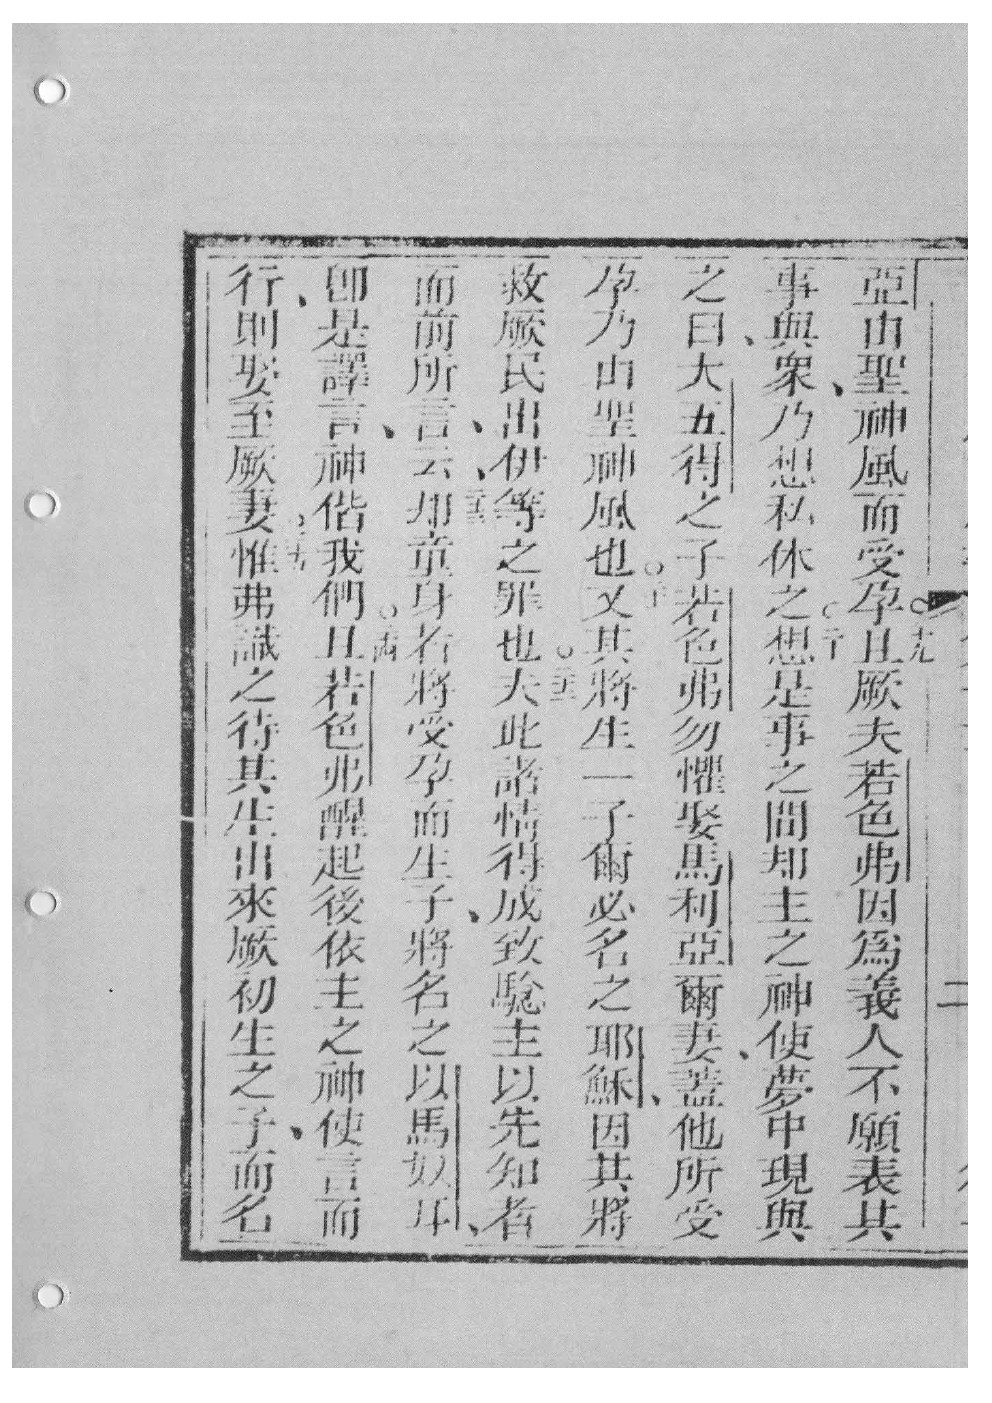 亞由聖神風而受孕○十九且厥夫若色弗因爲義人不願表其
事與衆乃想私休之○二十想是事之間却主之神使夢中現與
之曰大五得之子若色弗勿懼娶馬利亞爾妻蓋他所受
孕乃由聖神風也○又其將生一子爾必名之耶穌因其將
救厥民出伊等之罪也○夫此諸情得成致驗主以先知者
而前所言云二十三却童身者將受孕而生子將名之以馬奴耳
卽是譯言神偕我們○且若色弗醒起後依主之神使言而
行則娶至厥妻○惟弗識之待其生出來厥初生之子而名